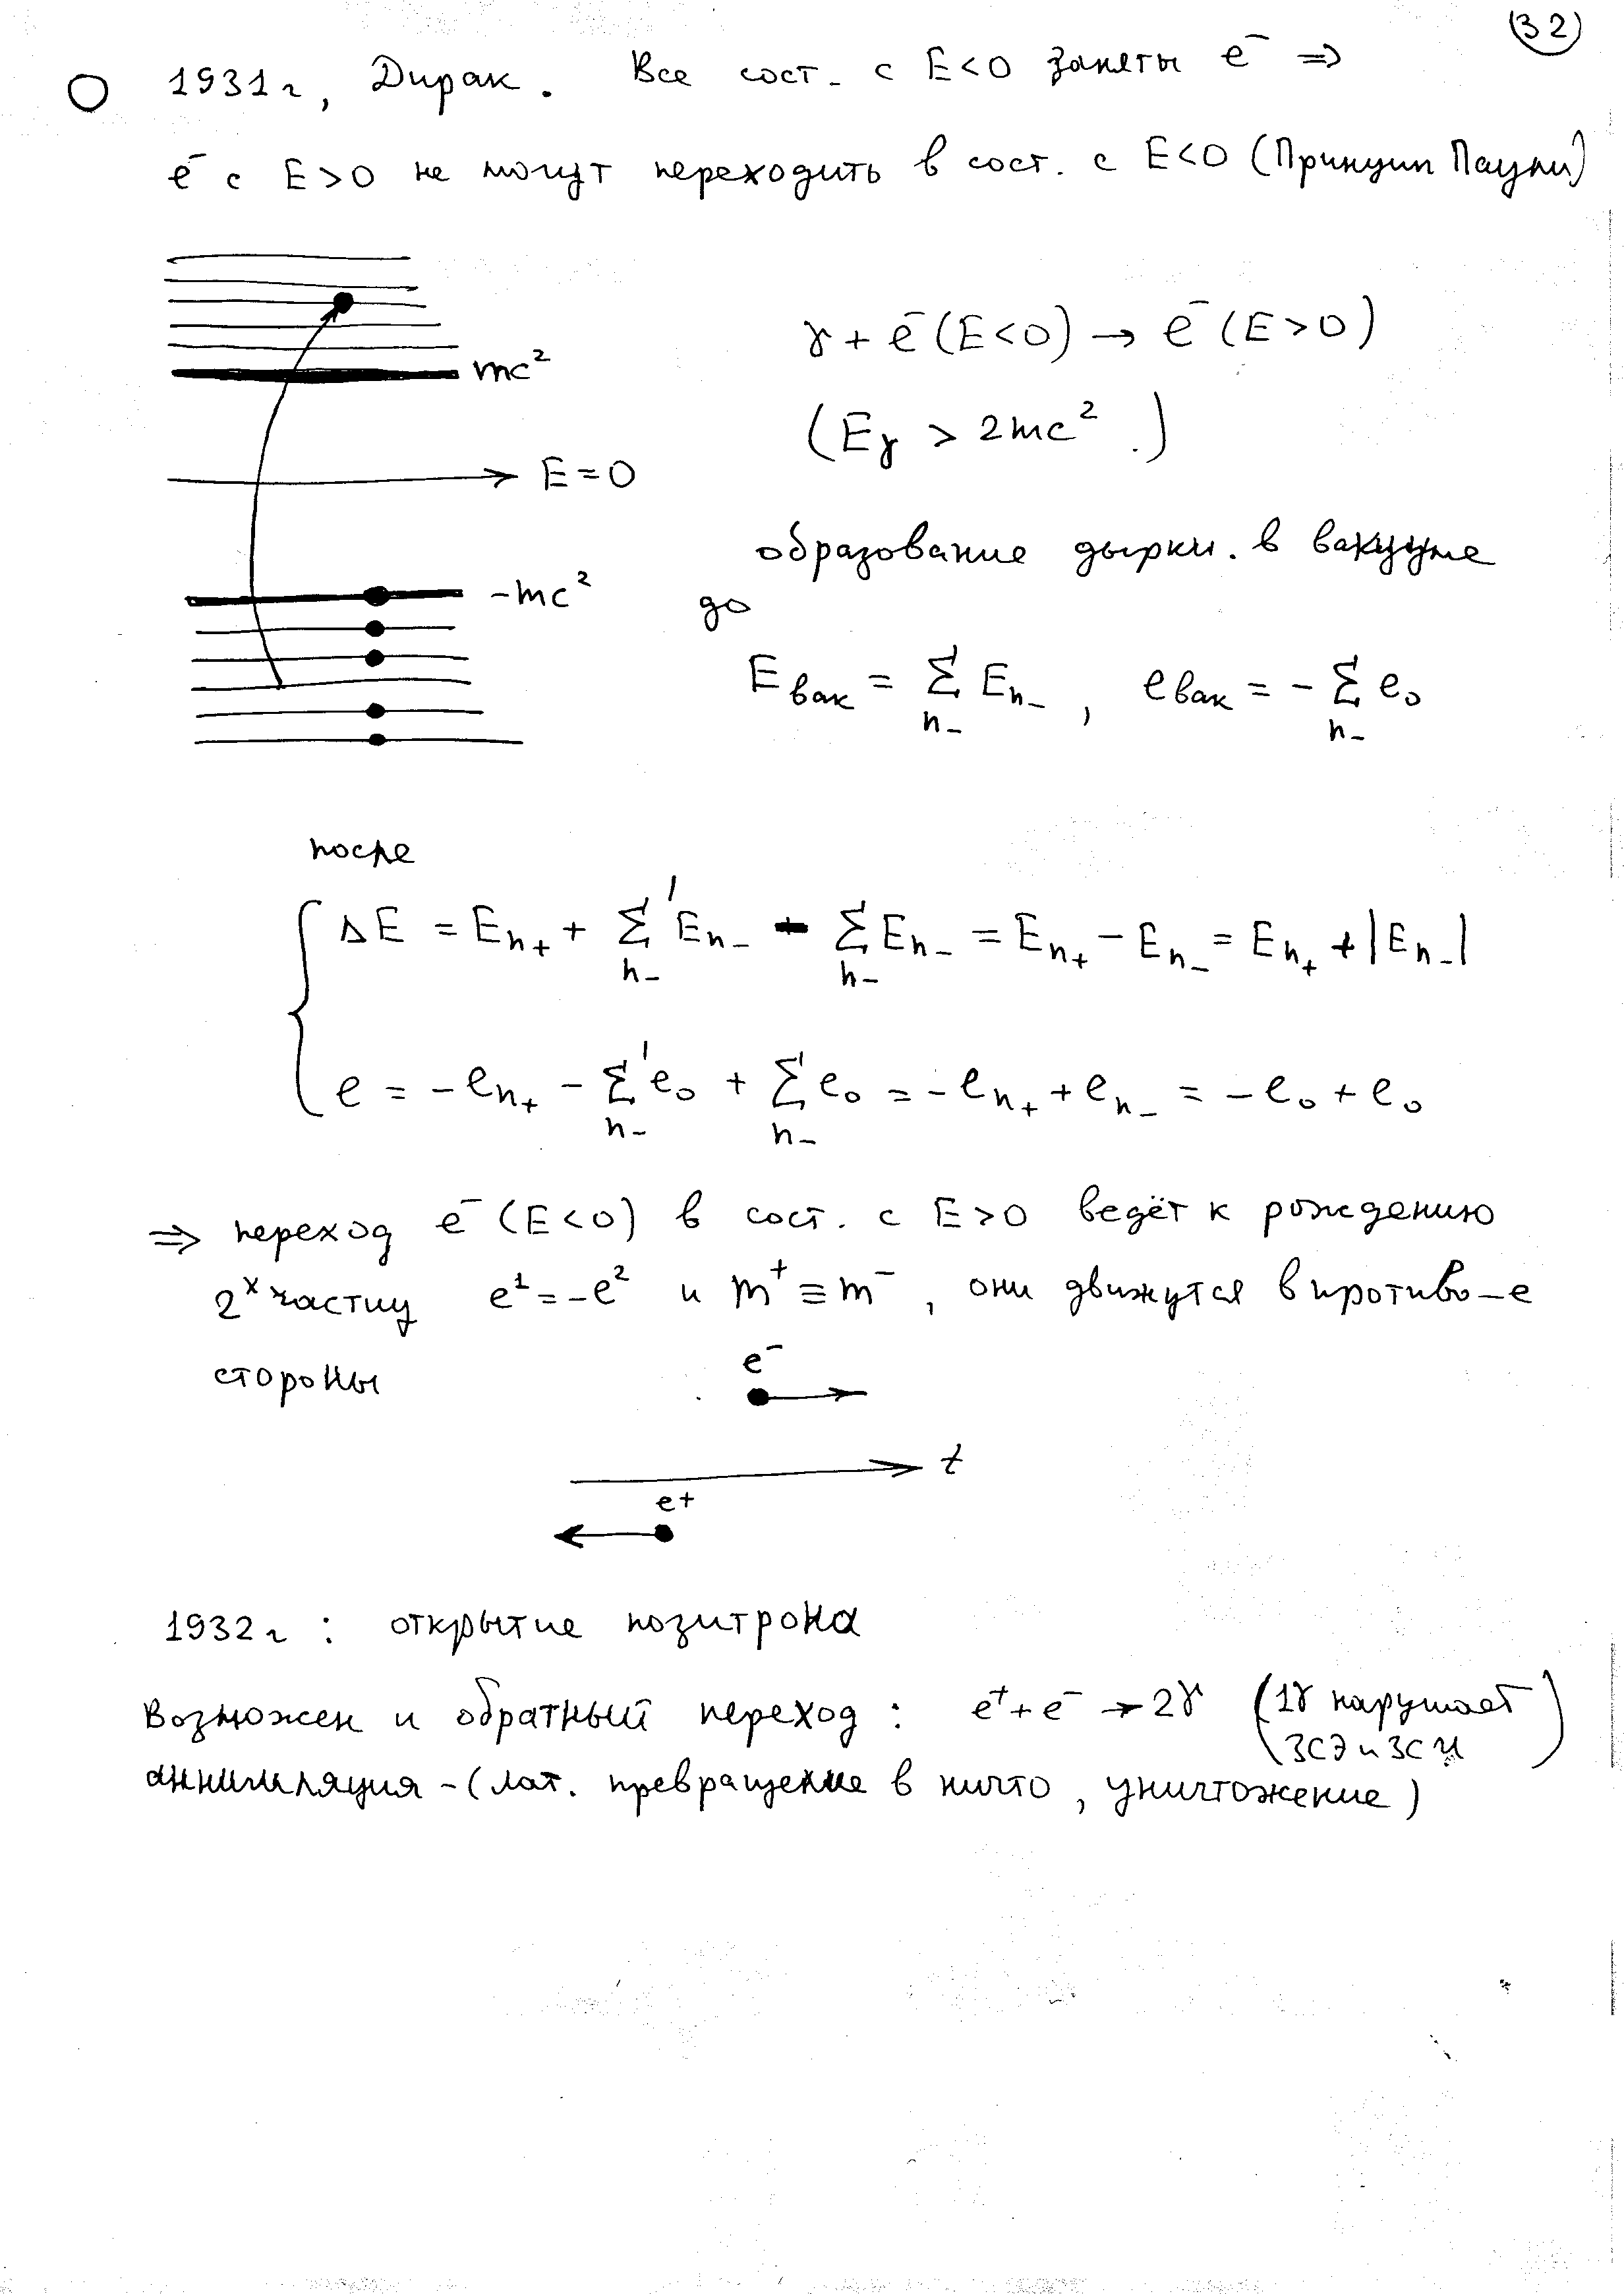 32
1931г, Дирак. Все сост. с E<0 заняты e⁻ ⇒
e⁻ с E>0 не могут переходить в сост. с E<0 (Принцип Паули)
mc²
γ + e⁻(E<0) → e⁻(E>0)
(E_γ > 2mc².)
E=0
образование дырки. в вакууме
-mc²
до
E_вак = Σ_{n₋} E_{n₋}, e_вак = - Σ_{n₋} e₀
после
ΔE = E_{n₊} + Σ'_{n₋} E_{n₋} - Σ_{n₋} E_{n₋} = E_{n₊} - E_{n₋} = E_{n₊} + |E_{n₋}|
e = -e_{n₊} - Σ'_{n₋} e₀ + Σ_{n₋} e₀ = -e_{n₊} + e_{n₋} = -e₀ + e₀
⇒ переход e⁻ (E<0) в сост. с E>0 ведёт к рождению
2ˣ частиц e¹=-e² и m⁺≡m⁻, они движутся в противо-е
стороны
e⁻
t
e+
1932г : открытие позитрона
Возможен и обратный переход : e⁺+e⁻ → 2γ (1γ нарушает
ЗСЭ и ЗСИ)
аннигиляция -(лат. превращение в ничто, уничтожение)